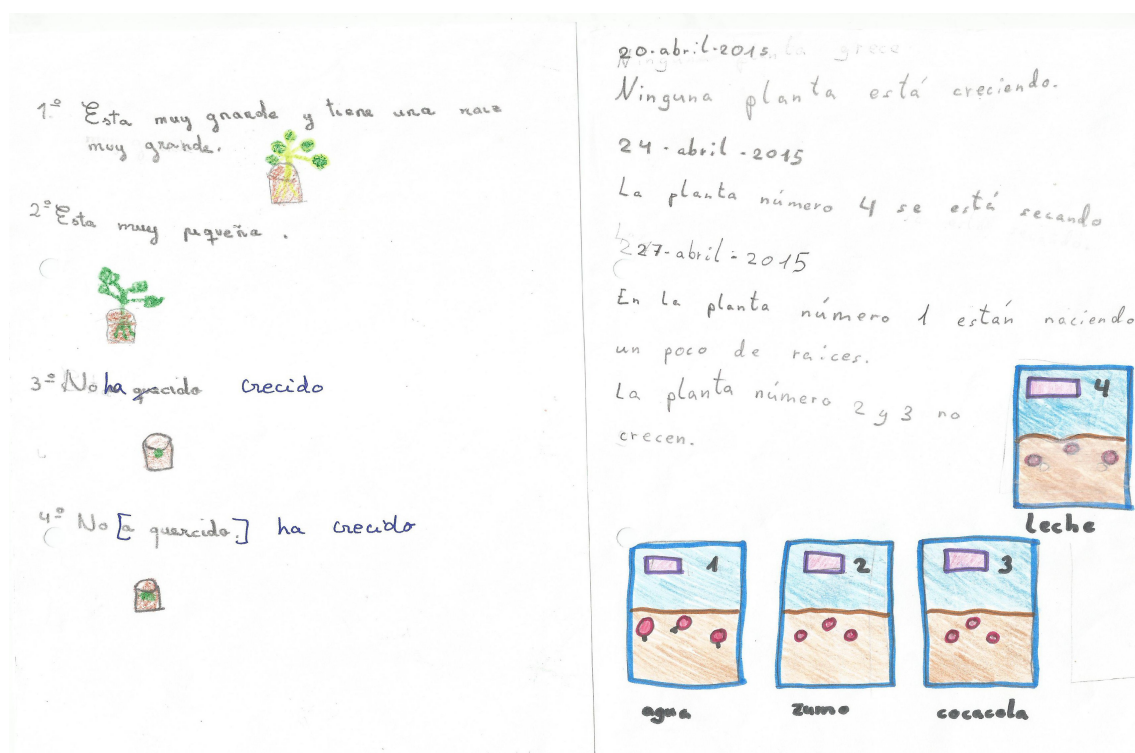 1º Esta muy grande y tiene una raiz
muy grande.
2º Esta muy pequeña.
3º No ha quecido crecido
4º No [a quercido.] ha crecido
20-abril-2015
Ninguna planta está creciendo.
24-abril-2015
La planta número 4 se está secando
27-abril-2015
En la planta número 1 están naciendo
un poco de raíces.
La planta número 2 y 3 no
crecen.
4
leche
1
agua
2
zumo
3
cocacola